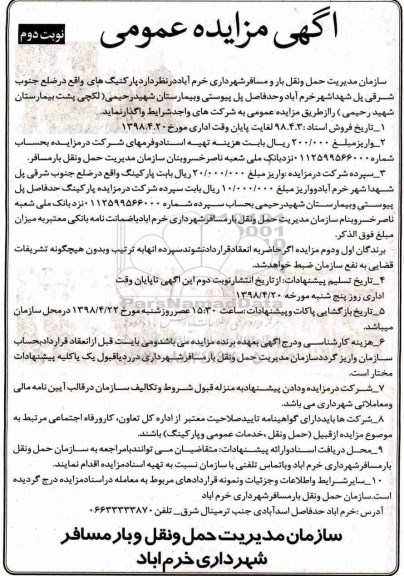 آگهی مزایده عمومی
نوبت دوم
سازمان مدیریت حمل ونقل بار و مسافرشهرداری خرم آباددرنظرداردپارکنیگ های واقع درضلع جنوب
شرقی پل شهداشهرخرم آباد وحدفاصل پل پیوستی وبیمارستان شهیدرحیمی(لکچی پشت بیمارستان
شهید رحیمی ) راازطریق مزایده عمومی به شرکت های واجدشرایط واگذارنماید.
۱_تاریخ فروش اسناد :۹۸.۴.۳ لغایت پایان وقت اداری مورخ ۱۳۹۸.۴.۲۰
۲_واریزمبلغ ۲۰۰/۰۰۰ ریال بابت هزینه تهیه اسنادوفرمهای شرکت درمزایده بحساب
شماره ۰۱۱۲۵۹۹۵۶۶۰۰۰نزدبانک ملی شعبه ناصرخسروبنان سازمان مدیریت حمل ونقل بارمسافر.
۳_سپرده شرکت درمزایده :واریز مبلغ ۲۰/۰۰۰/۰۰۰ ریال بابت پارکینگ واقع درضلع جنوب شرقی پل
شهدا شهر خرم آبادوواریز مبلغ ۱۰/۰۰۰/۰۰۰ ریال بابت سپرده شرکت درمزایده پارکینگ حدفاصل پل
پیوستی وبیمارستان شهیدرحیمی بحساب سپرده شماره ۰۱۱۲۵۹۹۵۶۶۰۰۰ نزدبانک ملی شعبه
ناصرخسروبنام سازمان مدیریت حمل ونقل بارمسافرشهرداری خرم ابادیاضمانت نامه بانکی معتبربه میزان
مبلغ فوق الذکر.
برندگان اول ودوم مزایده اگرحاضربه انعقادقراردادنشوندسپرده انهابه ترتیب وبدون هیچگونه تشریفات
قضایی به نفع سازمان ضبط خواهدشد.
۴_تاریخ تسلیم پیشنهادات: ازتاریخ انتشارنوبت دوم این اگهی تاپایان وقت
اداری روز پنج شنبه مورخه ۱۳۹۸/۴/۲۰
۵_تاریخ بازگشایی پاکات وپیشنهادات :ساعت ۱۵:۳۰ عصرروزشنبه مورخ ۱۳۹۸/۴/۲۲ درمحل سازمان
میباشد.
۶_هزینه کارشناسی ودرج اگهی بعهده برنده مزایده می باشدومی بایست قبل ازانعقاد قراردادبحساب
سازمان واریز گرددسازمان مدیریت حمل ونقل بارمسافرشهرداری درردیاقبول یک یاکلیه پیشنهادات
مختار است.
۷_شرکت درمزایده ودادن پیشنهادبه منزله قبول شروط وتکالیف سازمان درقالب آیین نامه مالی
ومعاملاتی شهرداری می باشد.
۸_شرکت ها بایددارای گواهینامه تاییدصلاحیت معتبر از اداره کل تعاون، کارورفاه اجتماعی مرتبط به
موضوع مزایده ازقبیل (حمل ونقل ،خدمات عمومی وپارکینگ) باشند.
۹_محل دریافت اسنادوارائه پیشنهادات: متقاضیان می توانندبامراجعه به سازمان حمل ونقل
بارمسافرشهرداری خرم اباد وباتماس تلفنی با سازمان نسبت به تهیه اسنادمزایده اقدام نمایند.
۱۰_سایرشرایط واطلاعات وجزئیات ونمونه قراردادهای مربوط به معامله دراسنادمزایده درج گردیده
است.سازمان حمل ونقل بارمسافرشهرداری خرم آباد
آدرس :خرم آباد حدفاصل اسدآبادی جنب ترمینال شرق_ تلفن ۰۶۶۳۳۳۳۳۸۷۰
سازمان مدیریت حمل ونقل وبار مسافر
شهرداری خرم اباد